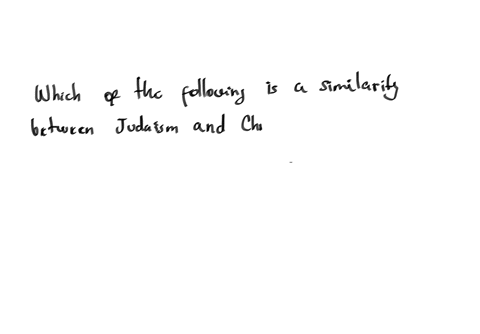 Which of the following is a similarity
between Judaism and Ch